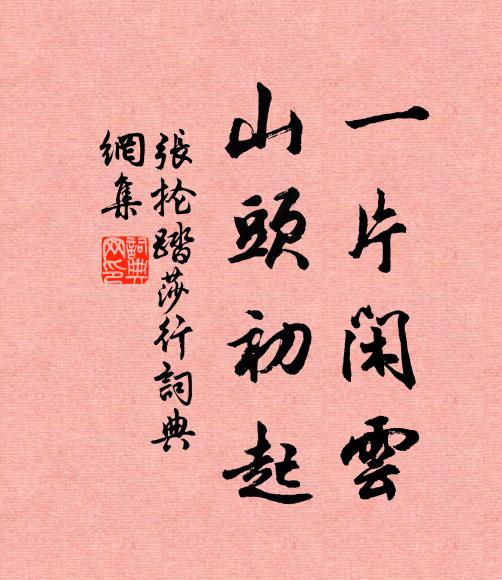 一片闲雲
山頭初起
張抡踏莎行詞典
網集
詞典
网印